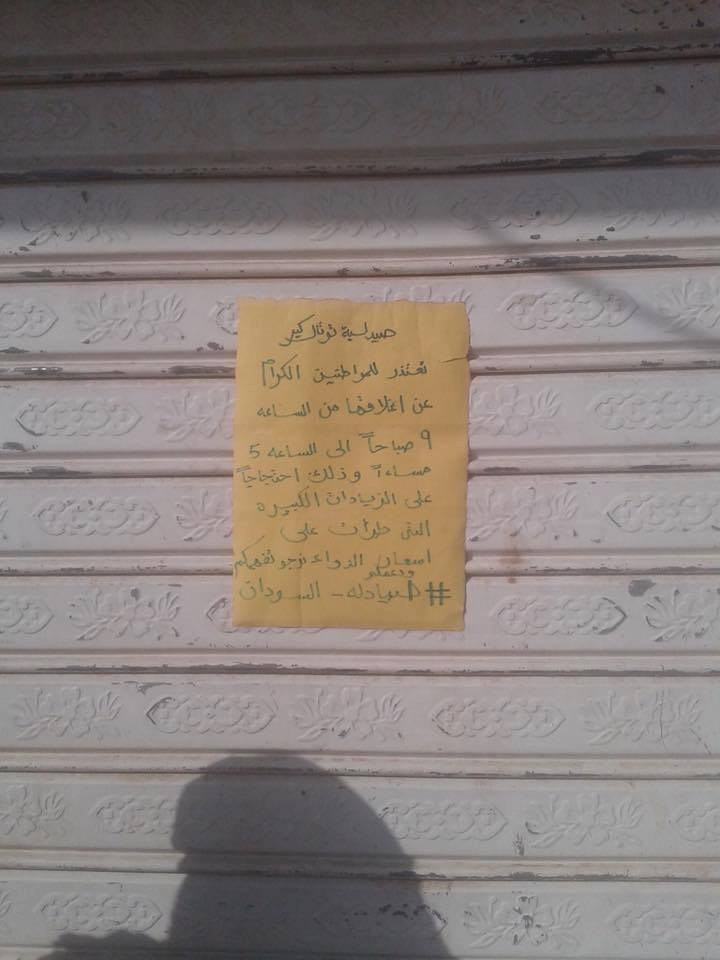 صيدلية توتال كير
تعتذر للمواطنين الكرام
عن اغلاقها من الساعه
٩ صباحاً الى الساعه 5
مساءاً وذلك احتجاجاً
على الزيادات الكبيره
التى طرأت على
اسعار الدواء نرجو تفهمكم
ودعمكم
#صيادله - السودان